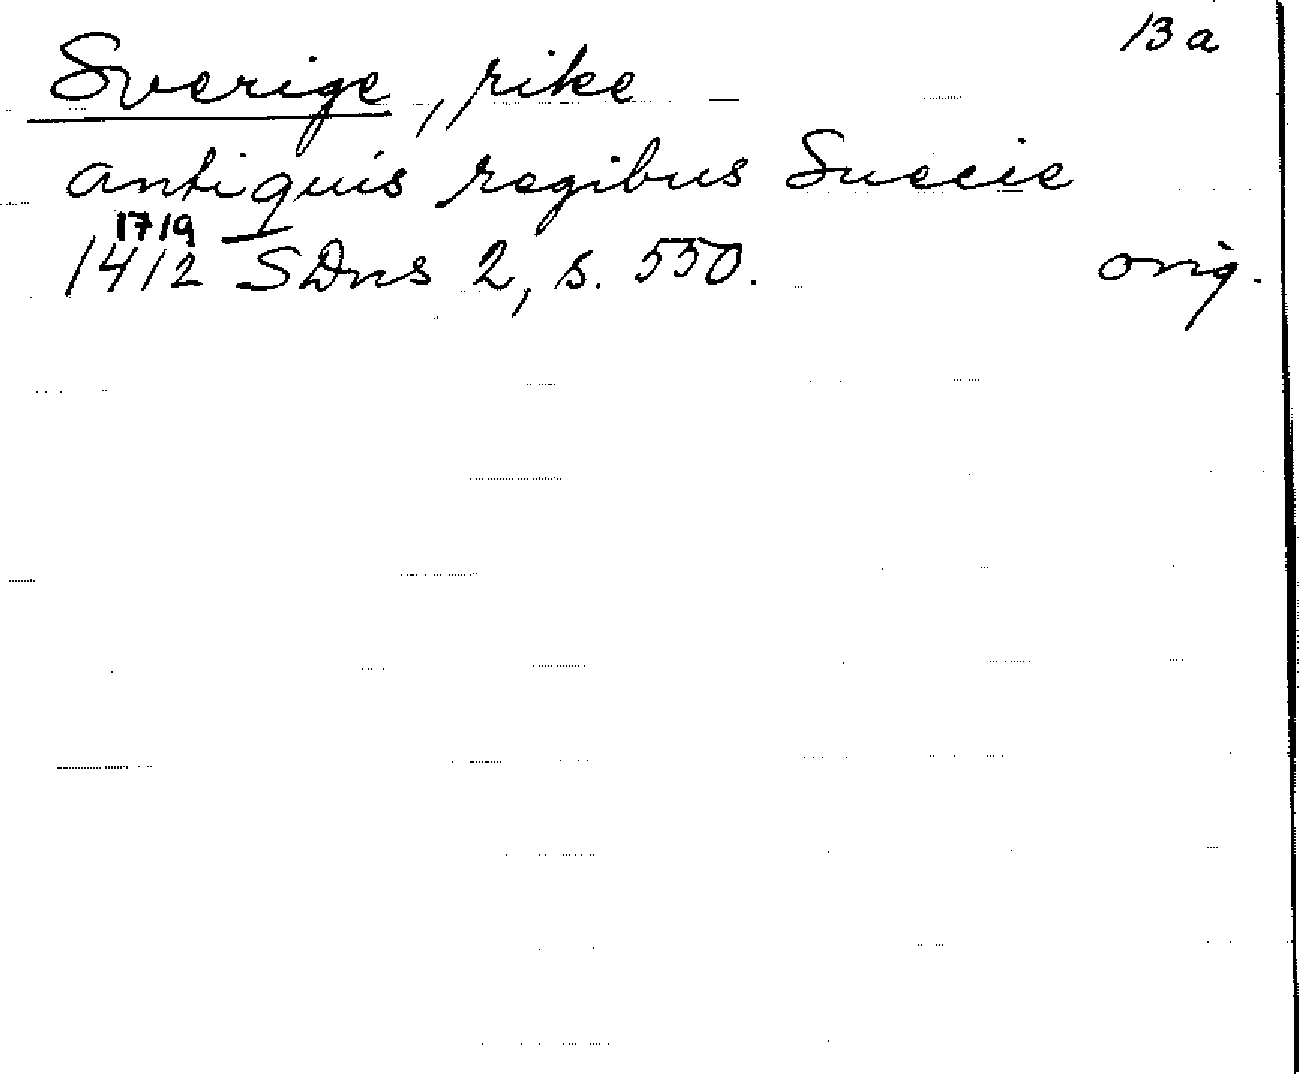 13 a
Sverige, rike
antiquis regibus Suecie
17/9
1412 SDns 2, s. 550. orig.